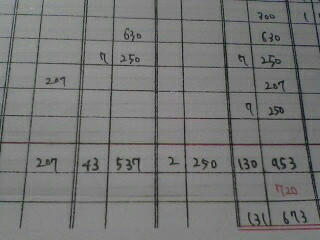 300 1
630 630
7 250 7 250
207 207
7 250
207 43 537 2 250 130 953
720
131 673